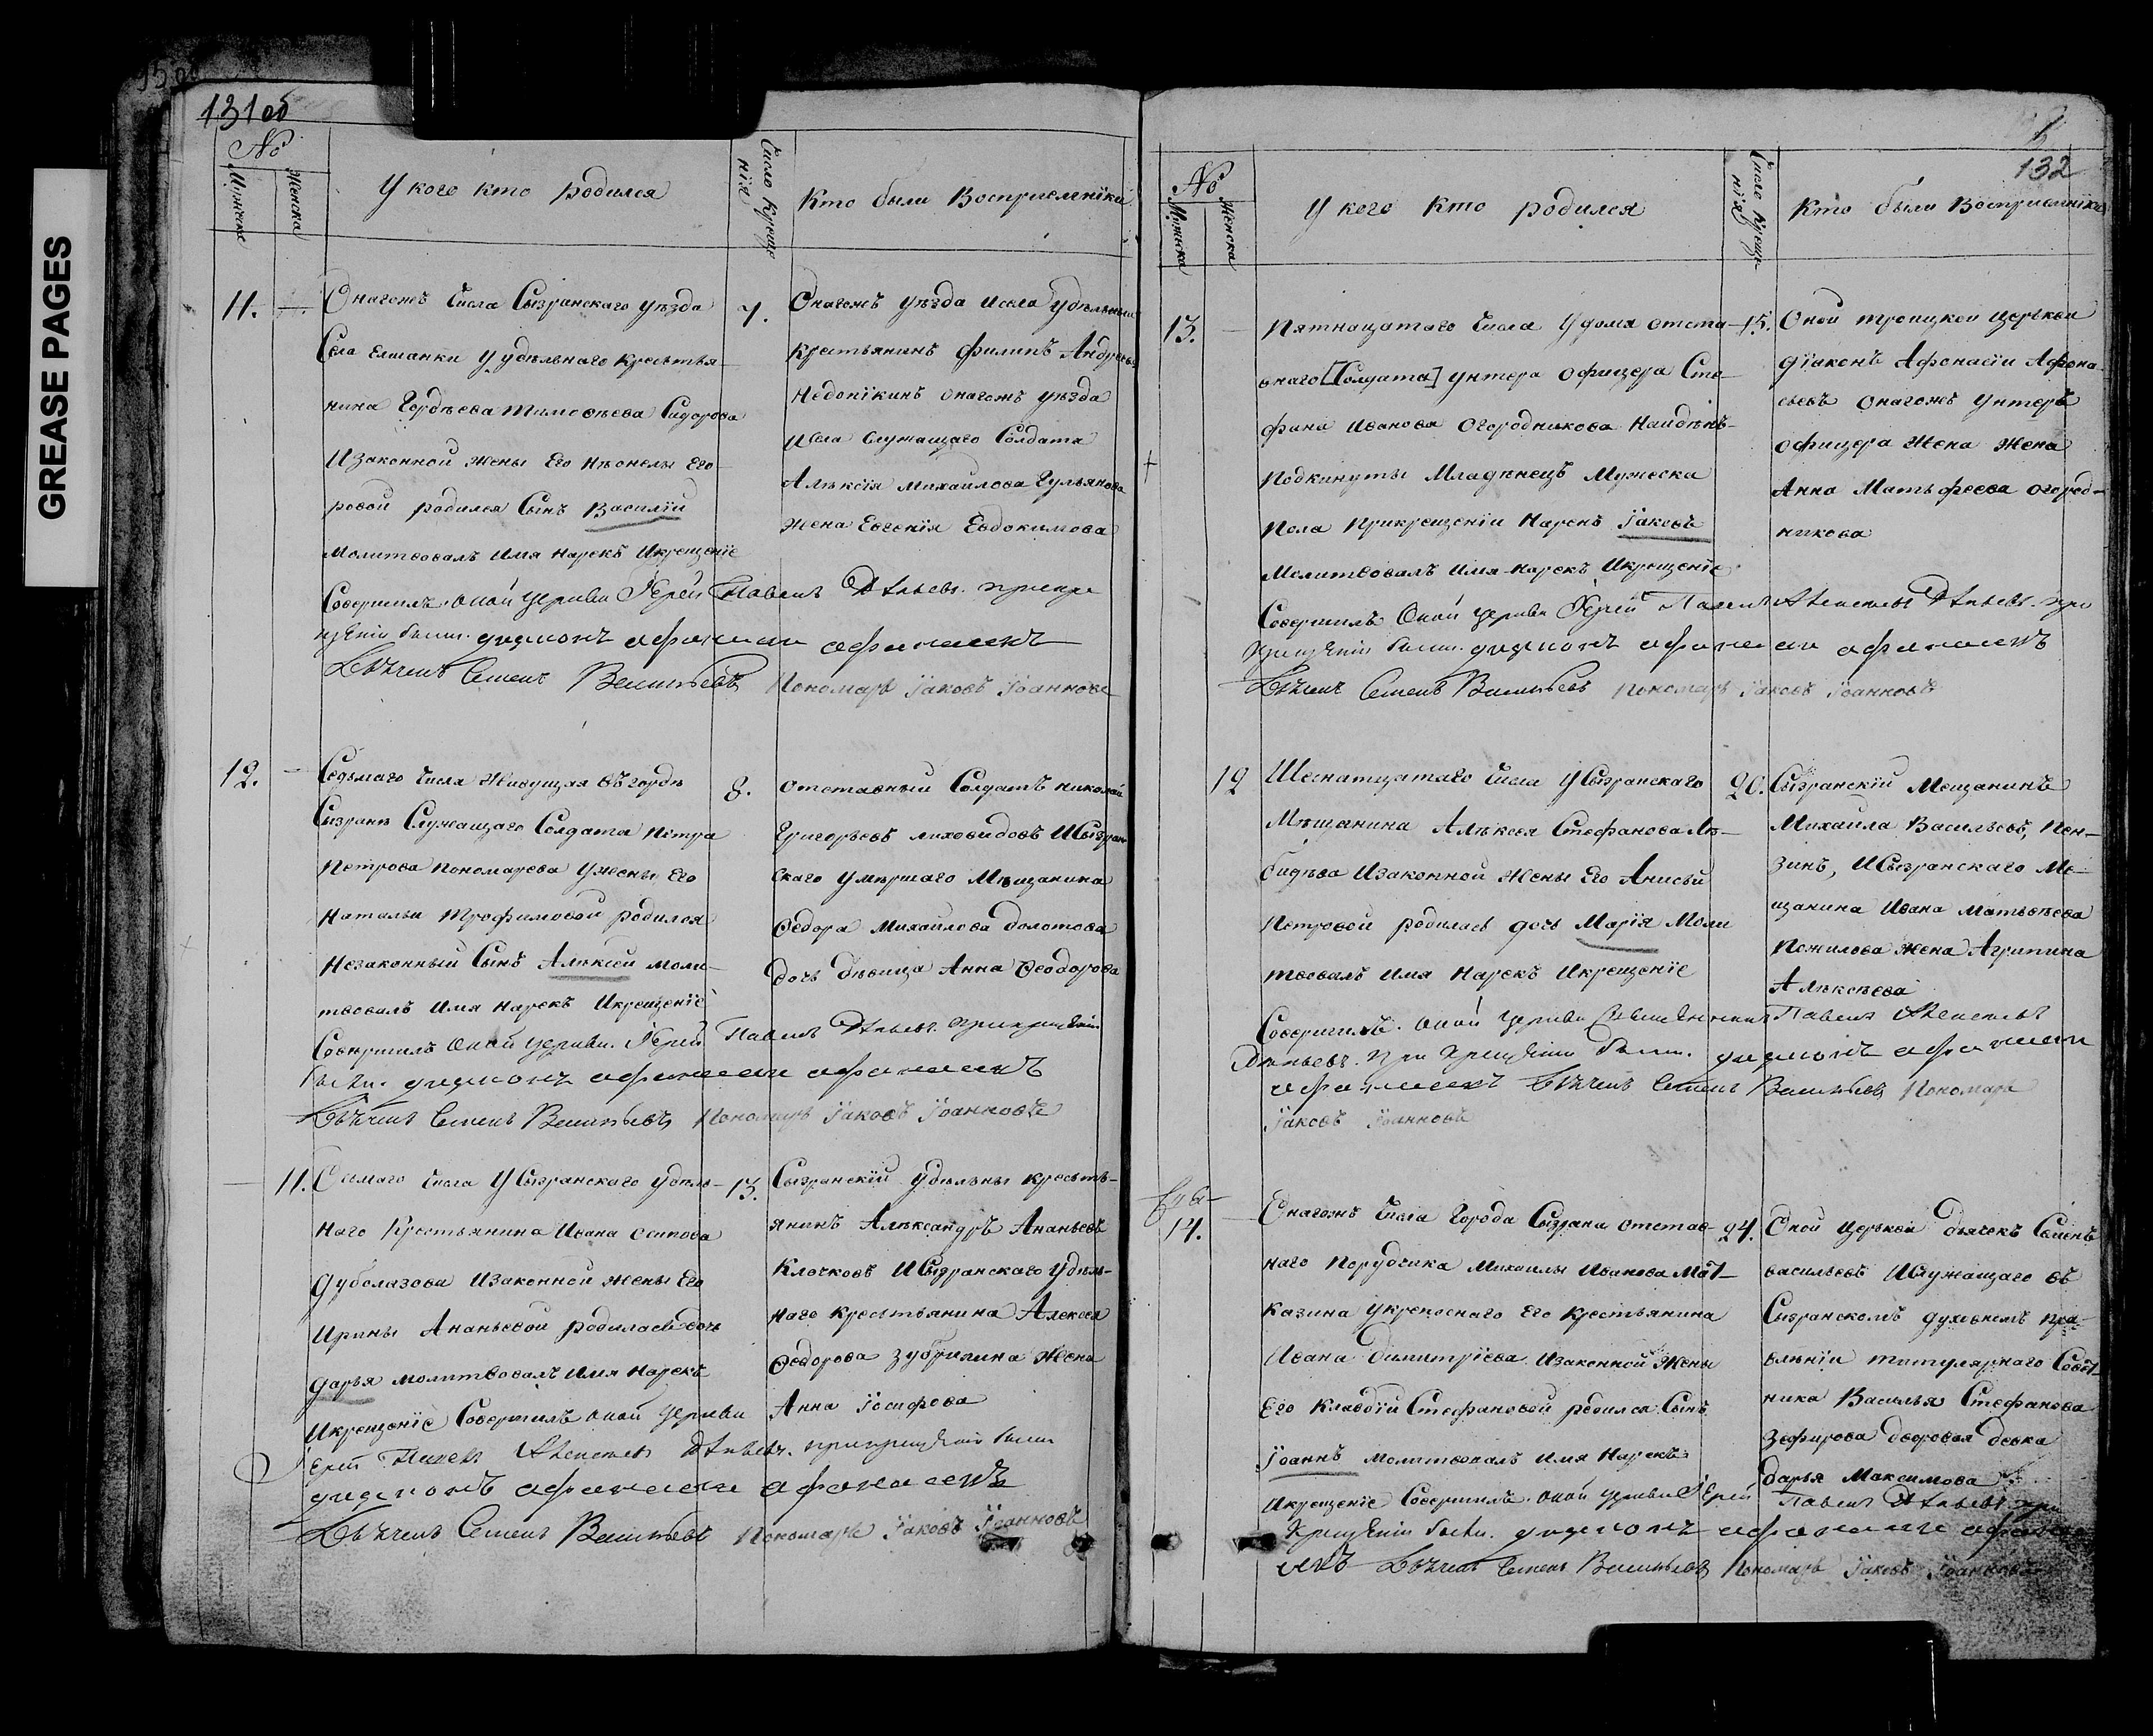 GREASE PAGES
131 об
№
Мужеска
Женска
У кого кто родился
Число крещения
Кто были Восприемнїки
11.
Онагожъ Числа Сызранскаго уѣзда
Села Елшанки у удѣльнаго крестья-
нина Гордѣева Тимоѳѣева Сидорова
Изаконной жены Его Неонелы Его-
ровой родился Сынъ Василїй
Молитвовалъ Имя Нарекъ Икрещенїе
Совершилъ оной Церкви Іерей Павелъ
діаконъ Афанасий Афанасьевъ
Дьячекъ Семенъ Васильевъ Пономарь Їаковъ Їоанновъ
7.
Онагожъ уѣзда Исела Удѣльный
крестьянинъ Филипъ Андреевъ
онагожъ уѣзда
Исела Служащаго Солдата
Алѣксїя Михаилова Гульянова
жена Евгенїя Евдокимова
12.
Седьмаго Числа Живущая въ городе
Сызране Служащаго Солдата Петра
Петрова Пономарева Ужены Его
Натальи Трофимовой родился
Незаконный Сынъ Алѣксей моли-
твовалъ Имя Нарекъ Икрещенїе
Совершилъ Оной Церкви Іерей Павелъ
были діаконъ Афанасий Афанасьевъ
Дьячекъ Семенъ Васильевъ Пономарь Їаковъ Їоанновъ
8.
отставный Солдатъ Николай
Григорьевъ Лиховидовъ ИСызран
скаго умѣршаго Мѣщанина
Ѳедора Михаилова Долотова
дочь дѣвица Анна Ѳеодорова
11.
Осмаго Числа УСызранскаго удѣль-
наго Крестьянина Ивана Осипова
Дуболазова Изаконной жены Его
Ирины Ананьевой родилась дочь
Дарья молитвовалъ Имя Нарекъ
Икрещенїе Совершилъ оной Церкви
Іерей Павелъ Алексѣевъ при крещеніи были
діаконъ Афанасий Афанасьевъ
Дьячекъ Семенъ Васильевъ Пономарь Їаковъ Їоанновъ
13.
Сызранскїй удѣльны крестьѣ-
янинъ Алѣксандръ Ананьевъ
Клочковъ ИСызранскаго Удѣль-
наго крестьянина Алексея
Ѳедорова Зубрилина Жена
Анна Їосифова
132
№
Мужеска
Женска
У кого кто родился
Число крещения
Кто были Восприемнїки
13.
Пятнацатаго Числа У дома отста-
внаго [Солдата] унтера офицера Сте-
фана Иванова Огородникова Найдѣнъ-
Подкинуты Младѣнецъ Мужеска
Пола Прикрещенїи Наренъ Їаковъ
Молитвовалъ Имя Нарекъ Икрещенїе
Совершилъ Оной Церкви Іерей Павелъ Алексѣевъ
крещеніи были діаконъ Афанасий Афанасьевъ
Дьячекъ Семенъ Васильевъ Пономарь Їаковъ Їоанновъ
15.
Оной троицкой церькви
дїаконъ Афонасїи Афона-
сьевъ Онагожъ Унтеръ
офицера Жена Жена
Анна Матьфеева Огород-
никова
12
Шеснатцатаго Числа УСызранскаго
Мѣщанина Алѣксея Стефанова Лѣ-
бидѣва Изаконной Жены Его Анисьи
Петровой родилась дочь Марїя Моли
твовалъ Имя Нарекъ Икрещенїе
Совершилъ оной Церкви Священникъ Павелъ Алексѣевъ
При Крещеніи были діаконъ Афанасий
Афанасьевъ Дьячекъ Семенъ Васильевъ Пономарь
Їаковъ Їоанновъ
20.
Сызранскїй Мещанинъ
Михаила Васильевъ, Пен-
зинъ, ИСызранскаго Ме-
щанина Ивана Матьѳѣева
Пожилова жена Агрипина
Алѣксѣева
14.
Онагожъ Числа Города Сызрани отстав-
наго Порудчика Михаилы Иванова Мат-
казина укрепоснаго Его Крестьянина
Ивана Димитрїева Изаконной Жены
Его Клавдїи Стефановой родился Сынъ
Їоаннъ Молитвовалъ Имя Нарекъ
Икрещенїе Совершилъ оной Церкви Іерей Павелъ
Крещеніи были діаконъ Афанасий Афанась
евъ Дьячекъ Семенъ Васильевъ Пономарь Їаковъ Їоанновъ
24.
Оной Церькви дьячекъ Семенъ
васильевъ ИСлужащаго въ
Сызранскомъ духовномъ пра-
влѣнїи титулярнаго Совѣт-
ника Василья Стефанова
Зефирова дворовая девка
дарья Максимова